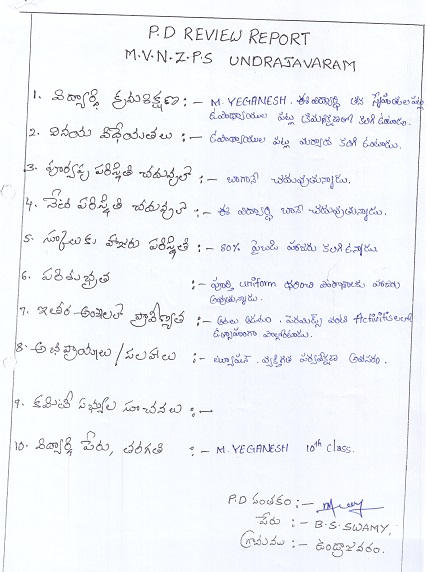 P.D REVIEW REPORT
M.V.N.Z.P.S UNDRAJAVARAM
1. విద్యార్థి క్రమశిక్షణ :- M. YEGANESH. ఈ విద్యార్థి తన స్నేహితులపట్ల
ఉపాధ్యాయుల పట్ల క్రమశిక్షణగా కలిగి ఉంటాడు.
2. వినయ విధేయతలు :- ఉపాధ్యాయుల పట్ల మర్యాద కలిగి ఉంటాడు.
3. పూర్వపు పరిస్థితి చదువులో :- బాగానే చదువుతున్నాడు.
4. నేటి పరిస్థితి చదువులో :- ఈ విద్యార్థి బాగా చదువుతున్నాడు.
5. స్కూలుకు హాజరు పరిస్థితి :- 80% పైబడి హాజరు కలిగి ఉన్నాడు.
6. పరిశుభ్రత :- పూర్తి uniform ధరించి పాఠశాలకు హాజరు
అవుతున్నాడు.
7. ఇతర అంశాలలో ప్రావీణ్యత :- ఆటలు ఆడటం. వంటి Activitiesలలో
ఉత్సాహంగా పాల్గొంటాడు.
8. అభిప్రాయలు / సలహాలు :- వ్యక్తిగత పర్యవేక్షణ అవసరం.
9. కమిటీ సభ్యుల సూచనలు :-
10. విద్యార్థి పేరు, తరగతి :- M. YEGANESH 10th Class.
P.D సంతకం :-
పేరు :- B.S. SWAMY,
గ్రామము :- ఉండ్రాజవరం.